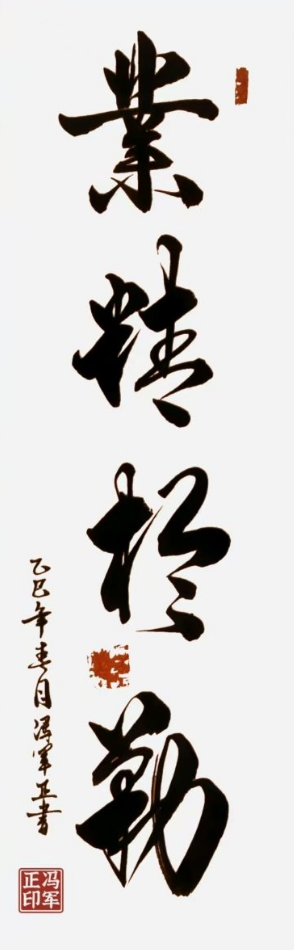 業精於勤
乙巳年春月馮軍正書
冯军
正印